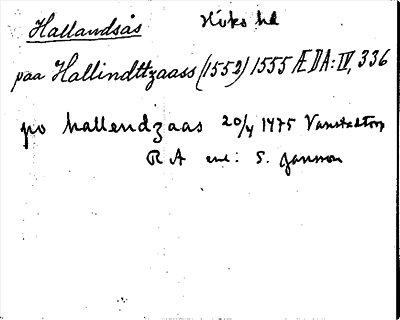 Hallandsås Höks hd
paa Hallindttzaass (1552) 1555 ÆDA: IV, 336
po hallendzaas 20/4 1475 Vanstadtorp
RA enl: S. Jansson